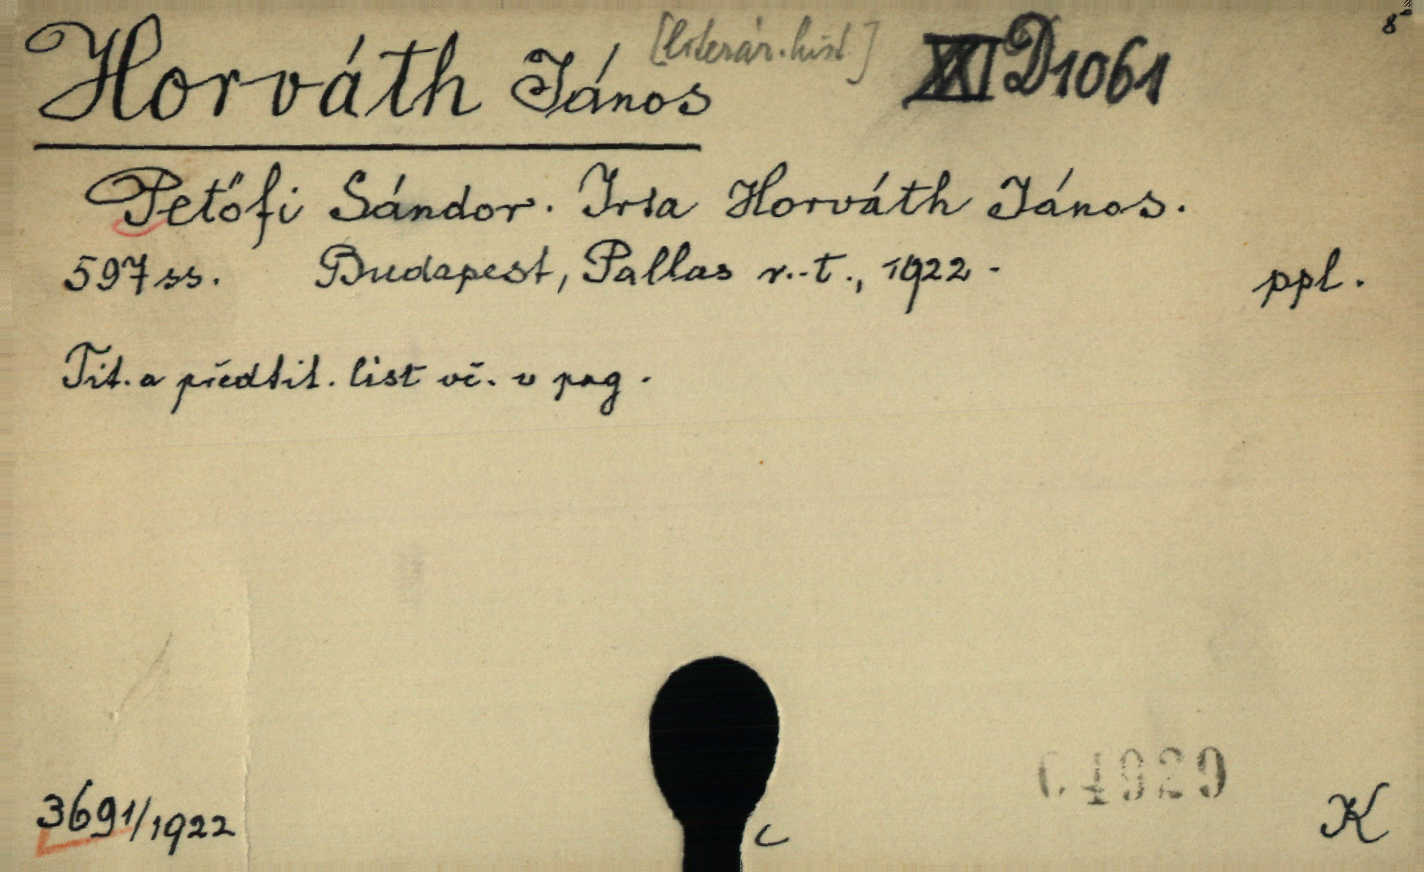 8°
[literár. hist.] XXI D 1061
Horváth János
Petőfi Sándor. Irta Horváth János.
597 ss. Budapest, Pallas r.-t., 1922. ppl.
Tit. a předtit. list vč. v pag.
04929
3691/1922
c
K